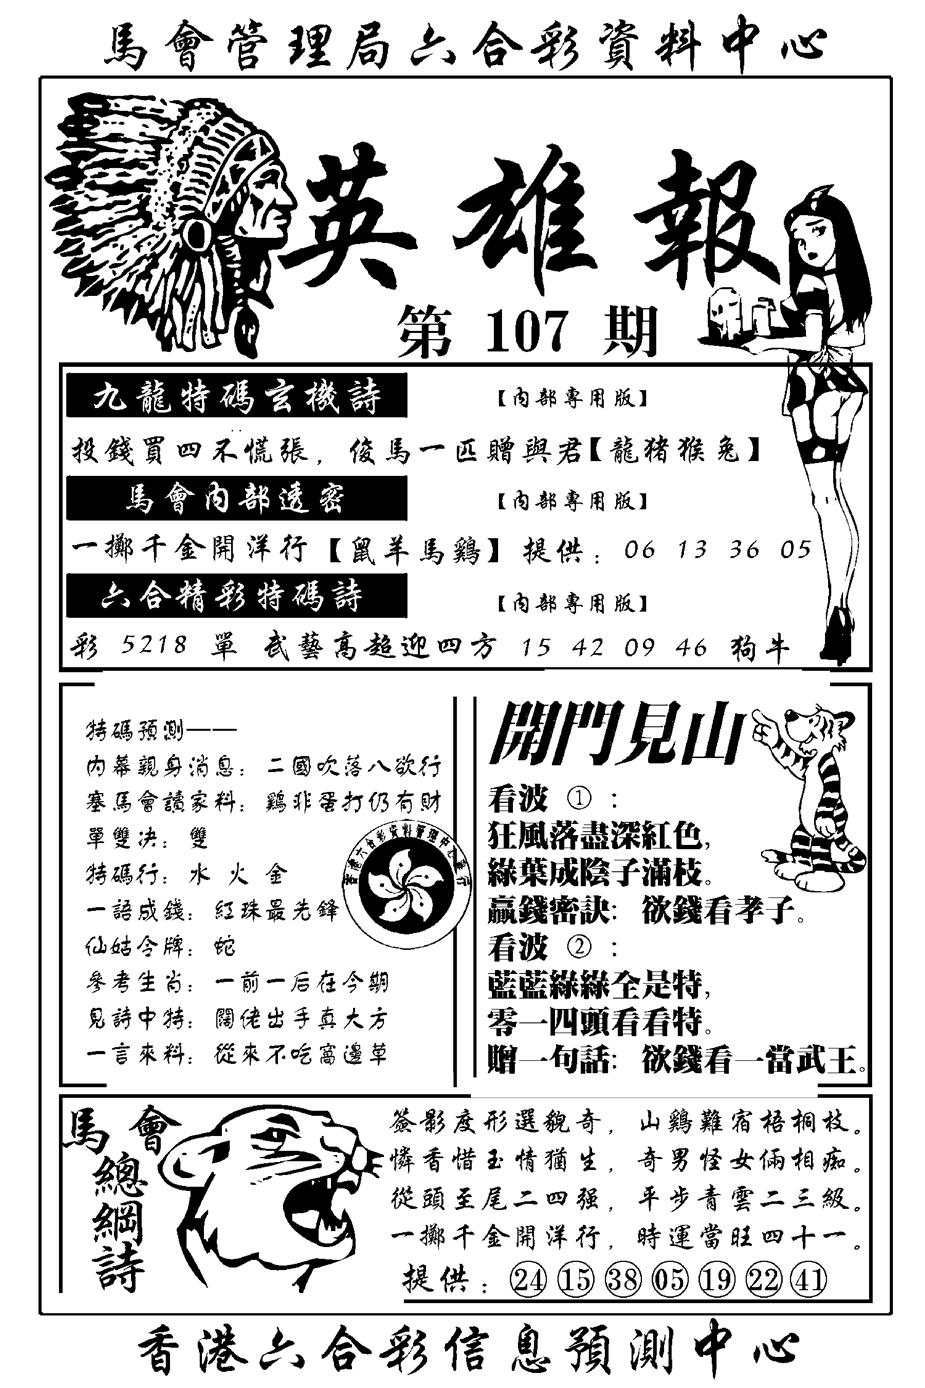 馬會管理局六合彩資料中心
英雄報
第 107 期
九龍特碼玄機詩 【內部專用版】
投錢買四不慌張，俊馬一匹贈與君【龍猪猴兔】
馬會內部透密 【內部專用版】
一擲千金開洋行【鼠羊馬鷄】提供：06 13 36 05
六合精彩特碼詩 【內部專用版】
彩 5218 單 武藝高超迎四方 15 42 09 46 狗牛
特碼預測——
內幕親身消息：二國吹落八欲行
塞馬會讀家料：鷄非蛋打仍有財
單雙决：雙
特碼行：水 火 金
一語成錢：紅珠最先鋒
仙姑令牌：蛇
參考生肖：一前一后在今期
見詩中特：闊佬出手真大方
一言來料：從來不吃窩邊草
開門見山
看波 ①：
狂風落盡深紅色，
綠葉成陰子滿枝。
贏錢密訣：欲錢看孝子。
看波 ②：
藍藍綠綠全是特，
零一四頭看看特。
贈一句話：欲錢看一當武王。
馬會
總綱詩
簽影度形選貌奇，山鷄難宿梧桐枝。
憐香惜玉情猶生，奇男怪女倆相痴。
從頭至尾二四强，平步青雲二三級。
一擲千金開洋行，時運當旺四十一。
提供：㉔⑮㊳⑤⑲㉒㊶
香港六合彩信息預測中心